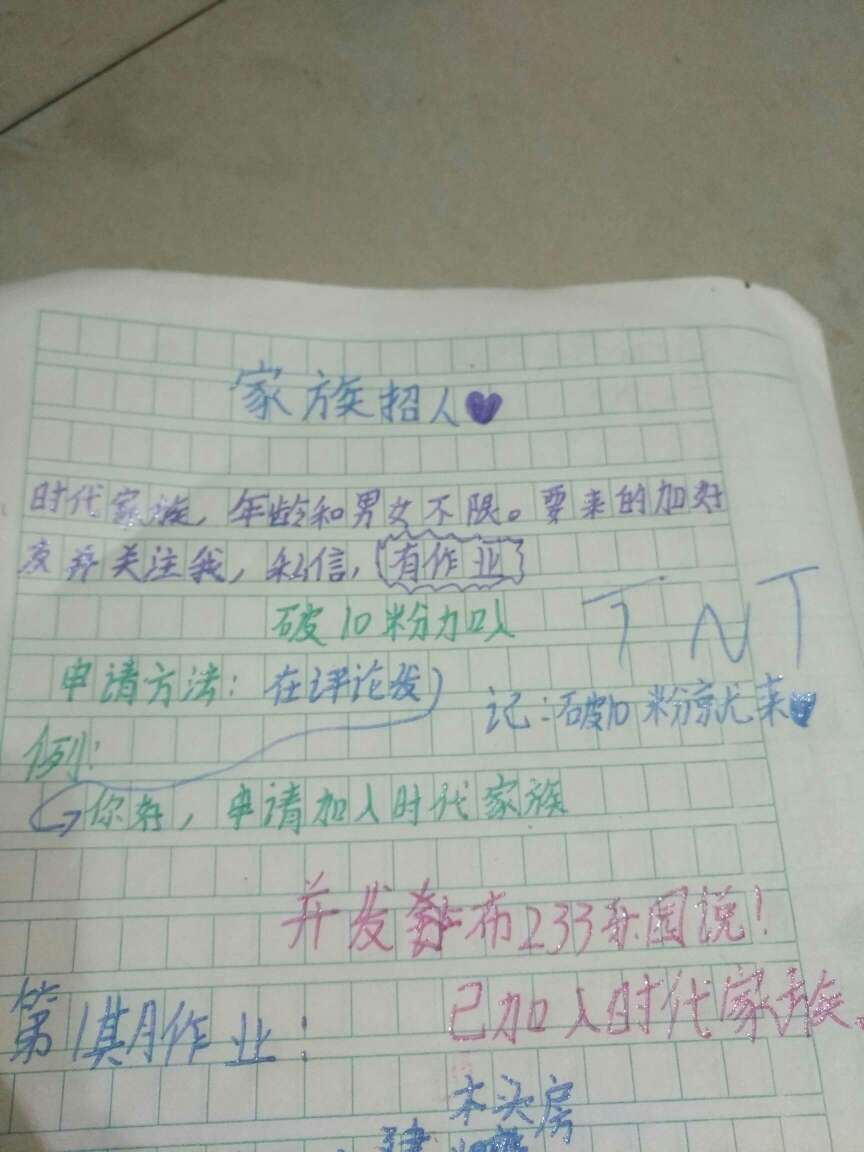 家族招人
时代家族，年龄和男女不限。要来的加好
友并关注我，私信，(有作业)
破10粉加入
TNT
申请方法：在评论发
记：破10粉就来
例：
你好，申请加入时代家族
并发布233乐园说！
已加入时代家族。
第1期作业：
木头房
建